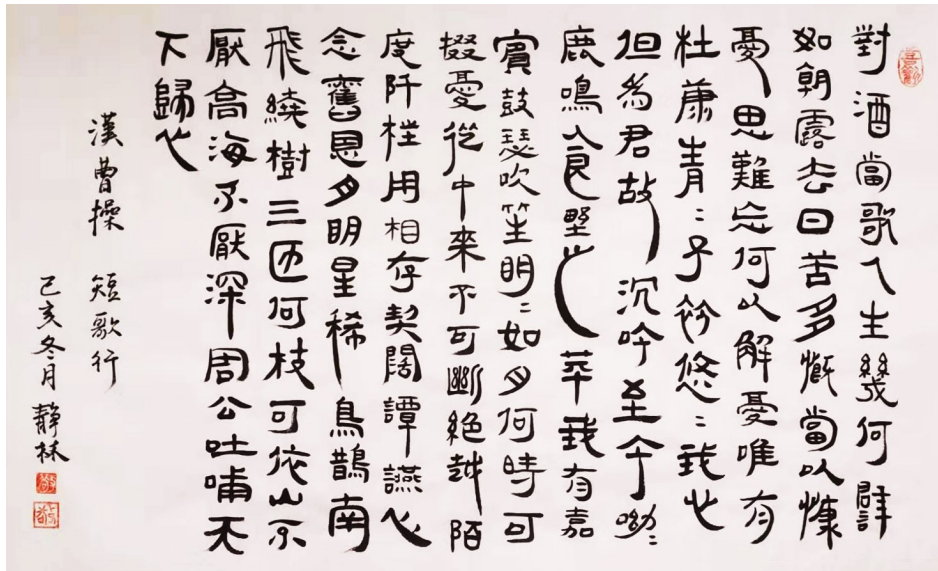 對酒當歌人生幾何譬
如朝露去日苦多慨當以慷
憂思難忘何以解憂唯有
杜康青〻子衿悠〻我心
但為君故沉吟至今呦〻
鹿鳴食野之苹我有嘉
賓鼓瑟吹笙明〻如月何時可
掇憂從中來不可斷絕越陌
度阡枉用相存契闊譚讌心
念舊恩月明星稀鳥鵲南
飛繞樹三匝何枝可依山不
厭高海不厭深周公吐哺天
下歸心
漢曹操 短歌行
己亥冬月 靜林